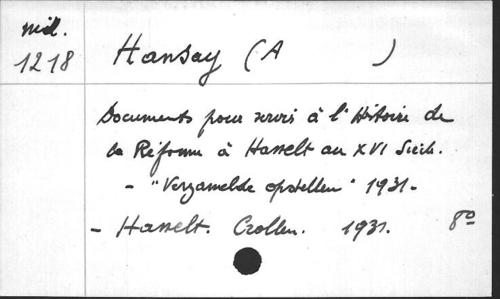 mél.
1218
Hansay (A )
Documents pour servir à l'Histoire de
la Réforme à Hasselt au XVI Siècle.
- "Verzamelde opstellen" 1931-
- Hasselt. Crollen. 1931. 8º